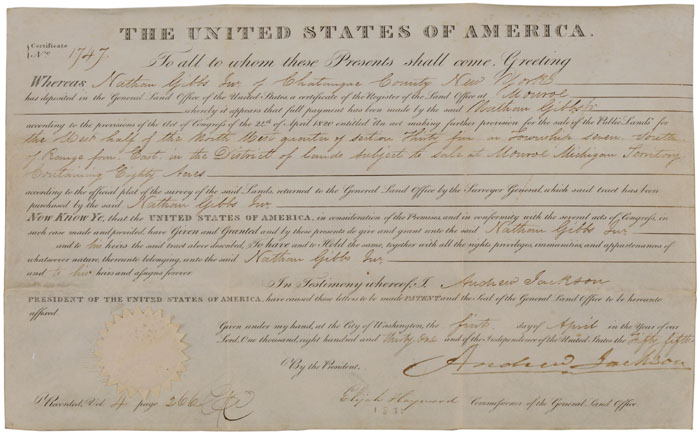 THE UNITED STATES OF AMERICA.
Certificate
No. 1747.
To all to whom these Presents shall come, Greeting
Whereas Nathan Gibbs Jur. of Chatauque County New York
has deposited in the General Land Office of the United States, a certificate of the Register of the Land Office at Monroe
whereby it appears that full payment has been made by the said Nathan Gibbs Jr
according to the provisions of the Act of Congress of the 22d of April 1820 entitled An act making further provision for the sale of the Public Lands for
the West half of the North West quarter of section Thirty five in Township seven South
of Range four East, in the District of lands subject to sale at Monroe Michigan Territory
Containing Eighty Acres
according to the official plat of the survey of the said Lands, returned to the General Land Office by the Surveyor General, which said tract has been
purchased by the said Nathan Gibbs Jur.
Now Know Ye, that the UNITED STATES OF AMERICA, in consideration of the Premises, and in conformity with the several acts of Congress, in
such case made and provided, have Given and Granted and by these presents do give and grant unto the said Nathan Gibbs Jur.
and to his heirs the said tract above described, To have and to Hold the same, together with all the rights privileges, immunities, and appurtenances of
whatsoever nature, thereunto belonging, unto the said Nathan Gibbs Jur.
and to his heirs and assigns forever
In Testimony whereof, I Andrew Jackson
PRESIDENT OF THE UNITED STATES OF AMERICA, have caused these letters to be made PATENT and the Seal of the General Land Office to be hereunto
affixed.
Given under my hand, at the City of Washington, the first day of April in the Year of our
Lord, One thousand, eight hundred and thirty One and of the Independence of the United States the fifty fifth
By the President. Andrew Jackson
Recorded, Vol 4 page 266
Elijah Hayward Commissioner of the General Land Office.